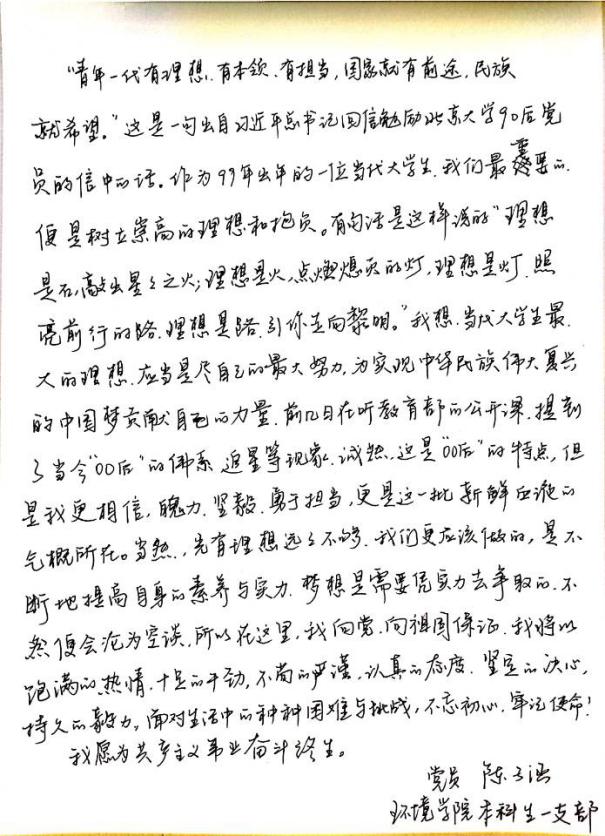 “青年一代有理想、有本领、有担当,国家就有前途,民族
就希望。”这是一句出自习近平总书记回信勉励北京大学90后党
员的信中的话。作为99年出年的一位当代大学生,我们最重要的
便是树立崇高的理想和抱负。有句话是这样说的“理想
是石,敲出星星之火;理想是火,点燃熄灭的灯,理想是灯,照
亮前行的路,理想是路,引你走向黎明。”我想,当代大学生最
大的理想,应当是尽自己的最大努力,为实现中华民族伟大复兴
的中国梦贡献自己的力量。前几日在听教育部的公开课,提到
了当今“00后”的佛系、追星等现象,诚然,这是“00后”的特点,但
是我更相信,魄力、坚毅、勇于担当,更是这一批新鲜血液的
气概所在。当然,光有理想远远不够,我们更应该做的,是不
断地提高自身的素养与实力,梦想是需要凭实力去争取的,不
然便会沦为空谈,所以在这里,我向党、向祖国保证,我将以
饱满的热情、十足的干劲、不苟的严谨、认真的态度、坚定的决心、
持久的毅力,面对生活中的种种困难与挑战,不忘初心,牢记使命!
我愿为共产主义事业奋斗终生。
党员 陈子涵
环境学院本科生一支部